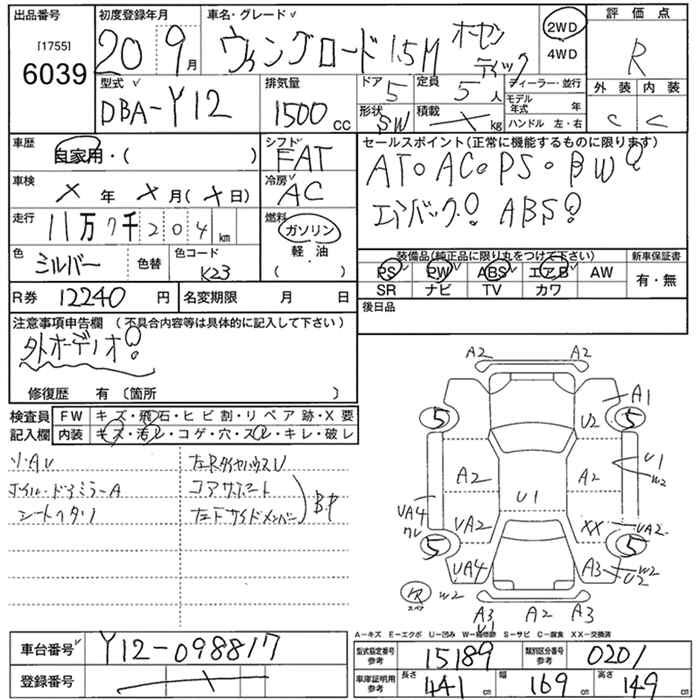 出品番号 初度登録年月 車名・グレード 評価点
[1755]
6039
20 9月 ウィングロード 1.5M オーセンティック 2WD 4WD R
型式 排気量 ドア 定員 ディーラー・並行 外装 内装
DBA-Y12 1500 CC 5 5人 モデル年式 年
形状 SW 積載 kg ハンドル 左・右 C C
車歴 シフト セールスポイント(正常に機能するものに限ります)
自家用・( ) FAT AT。AC。PS。PW
車検 冷房
× 年 × 月(× 日) AC エアバック ABS
走行 燃料
11万7千204km ガソリン
軽油
( )
色 シルバー 色替 色コード K23
装備品(純正品に限り丸をつけて下さい) 新車保証書
PS PW ABS エアB AW 有・無
SR ナビ TV カワ
R券 12240 円 名変期限 月 日
後日品
注意事項申告欄 (不具合内容等は具体的に記入して下さい)
外オーディオ
修復歴 有 〔箇所 〕
検査員 FW キズ・飛石・ヒビ割・リペア跡・X要
記入欄 内装 キズ・汚レ・コゲ・穴・スレ・キレ・破レ
ソ・AU 左RタイヤハウスU
ホイル・ドアミラーA コアサポート
シートヘタリ 左Fサイドメンバー B.P
A2 A2
A1
5 U2 5
U1
W2
A2 A2
U1
UA4 UA2 XX UA2
5 UA4 A3 5
U2 W2
R W2
スペア
A3 A2 A3
U1
A-キズ E-エクボ U-凹み W-補修跡 S-サビ C-腐食 XX-交換済
車台番号 Y12-098817
型式指定番号 参考 15189 類別区分番号 参考 0201
登録番号
車庫証明用 参考 長さ 441 cm 幅 169 cm 高さ 149 cm